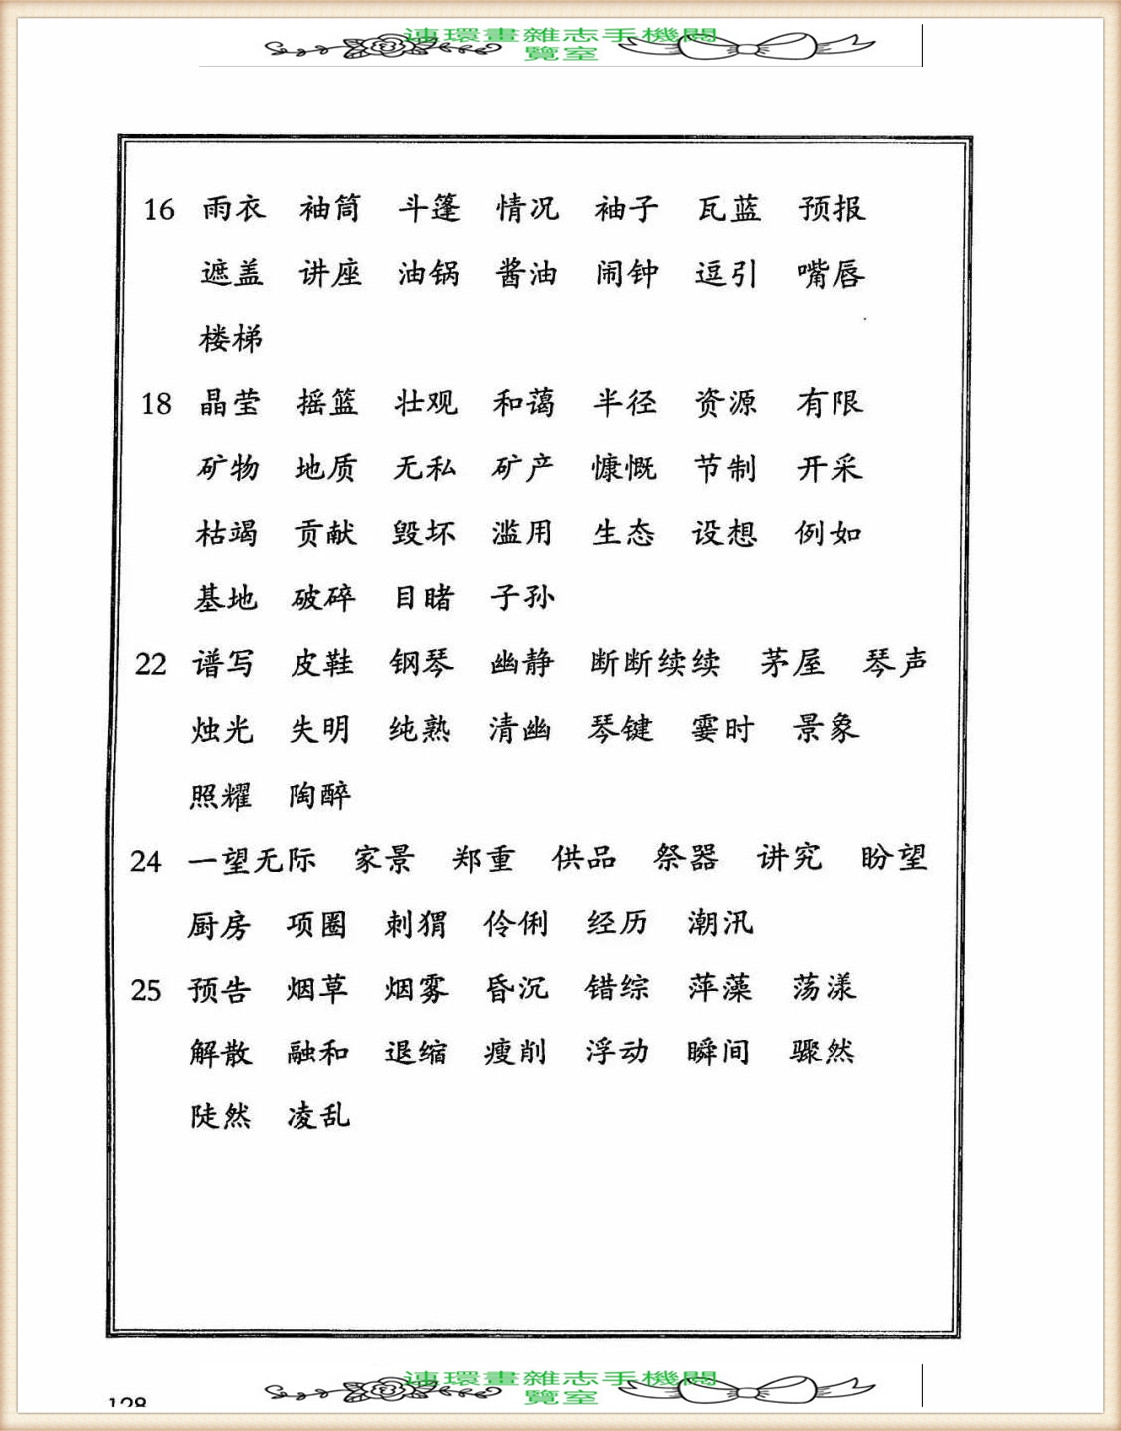 連環畫雜志手機閱
覽室
16 雨衣 袖筒 斗篷 情况 袖子 瓦蓝 预报
遮盖 讲座 油锅 酱油 闹钟 逗引 嘴唇
楼梯
18 晶莹 摇篮 壮观 和蔼 半径 资源 有限
矿物 地质 无私 矿产 慷慨 节制 开采
枯竭 贡献 毁坏 滥用 生态 设想 例如
基地 破碎 目睹 子孙
22 谱写 皮鞋 钢琴 幽静 断断续续 茅屋 琴声
烛光 失明 纯熟 清幽 琴键 霎时 景象
照耀 陶醉
24 一望无际 家景 郑重 供品 祭器 讲究 盼望
厨房 项圈 刺猬 伶俐 经历 潮汛
25 预告 烟草 烟雾 昏沉 错综 萍藻 荡漾
解散 融和 退缩 瘦削 浮动 瞬间 骤然
陡然 凌乱
連環畫雜志手機閱
覽室
128